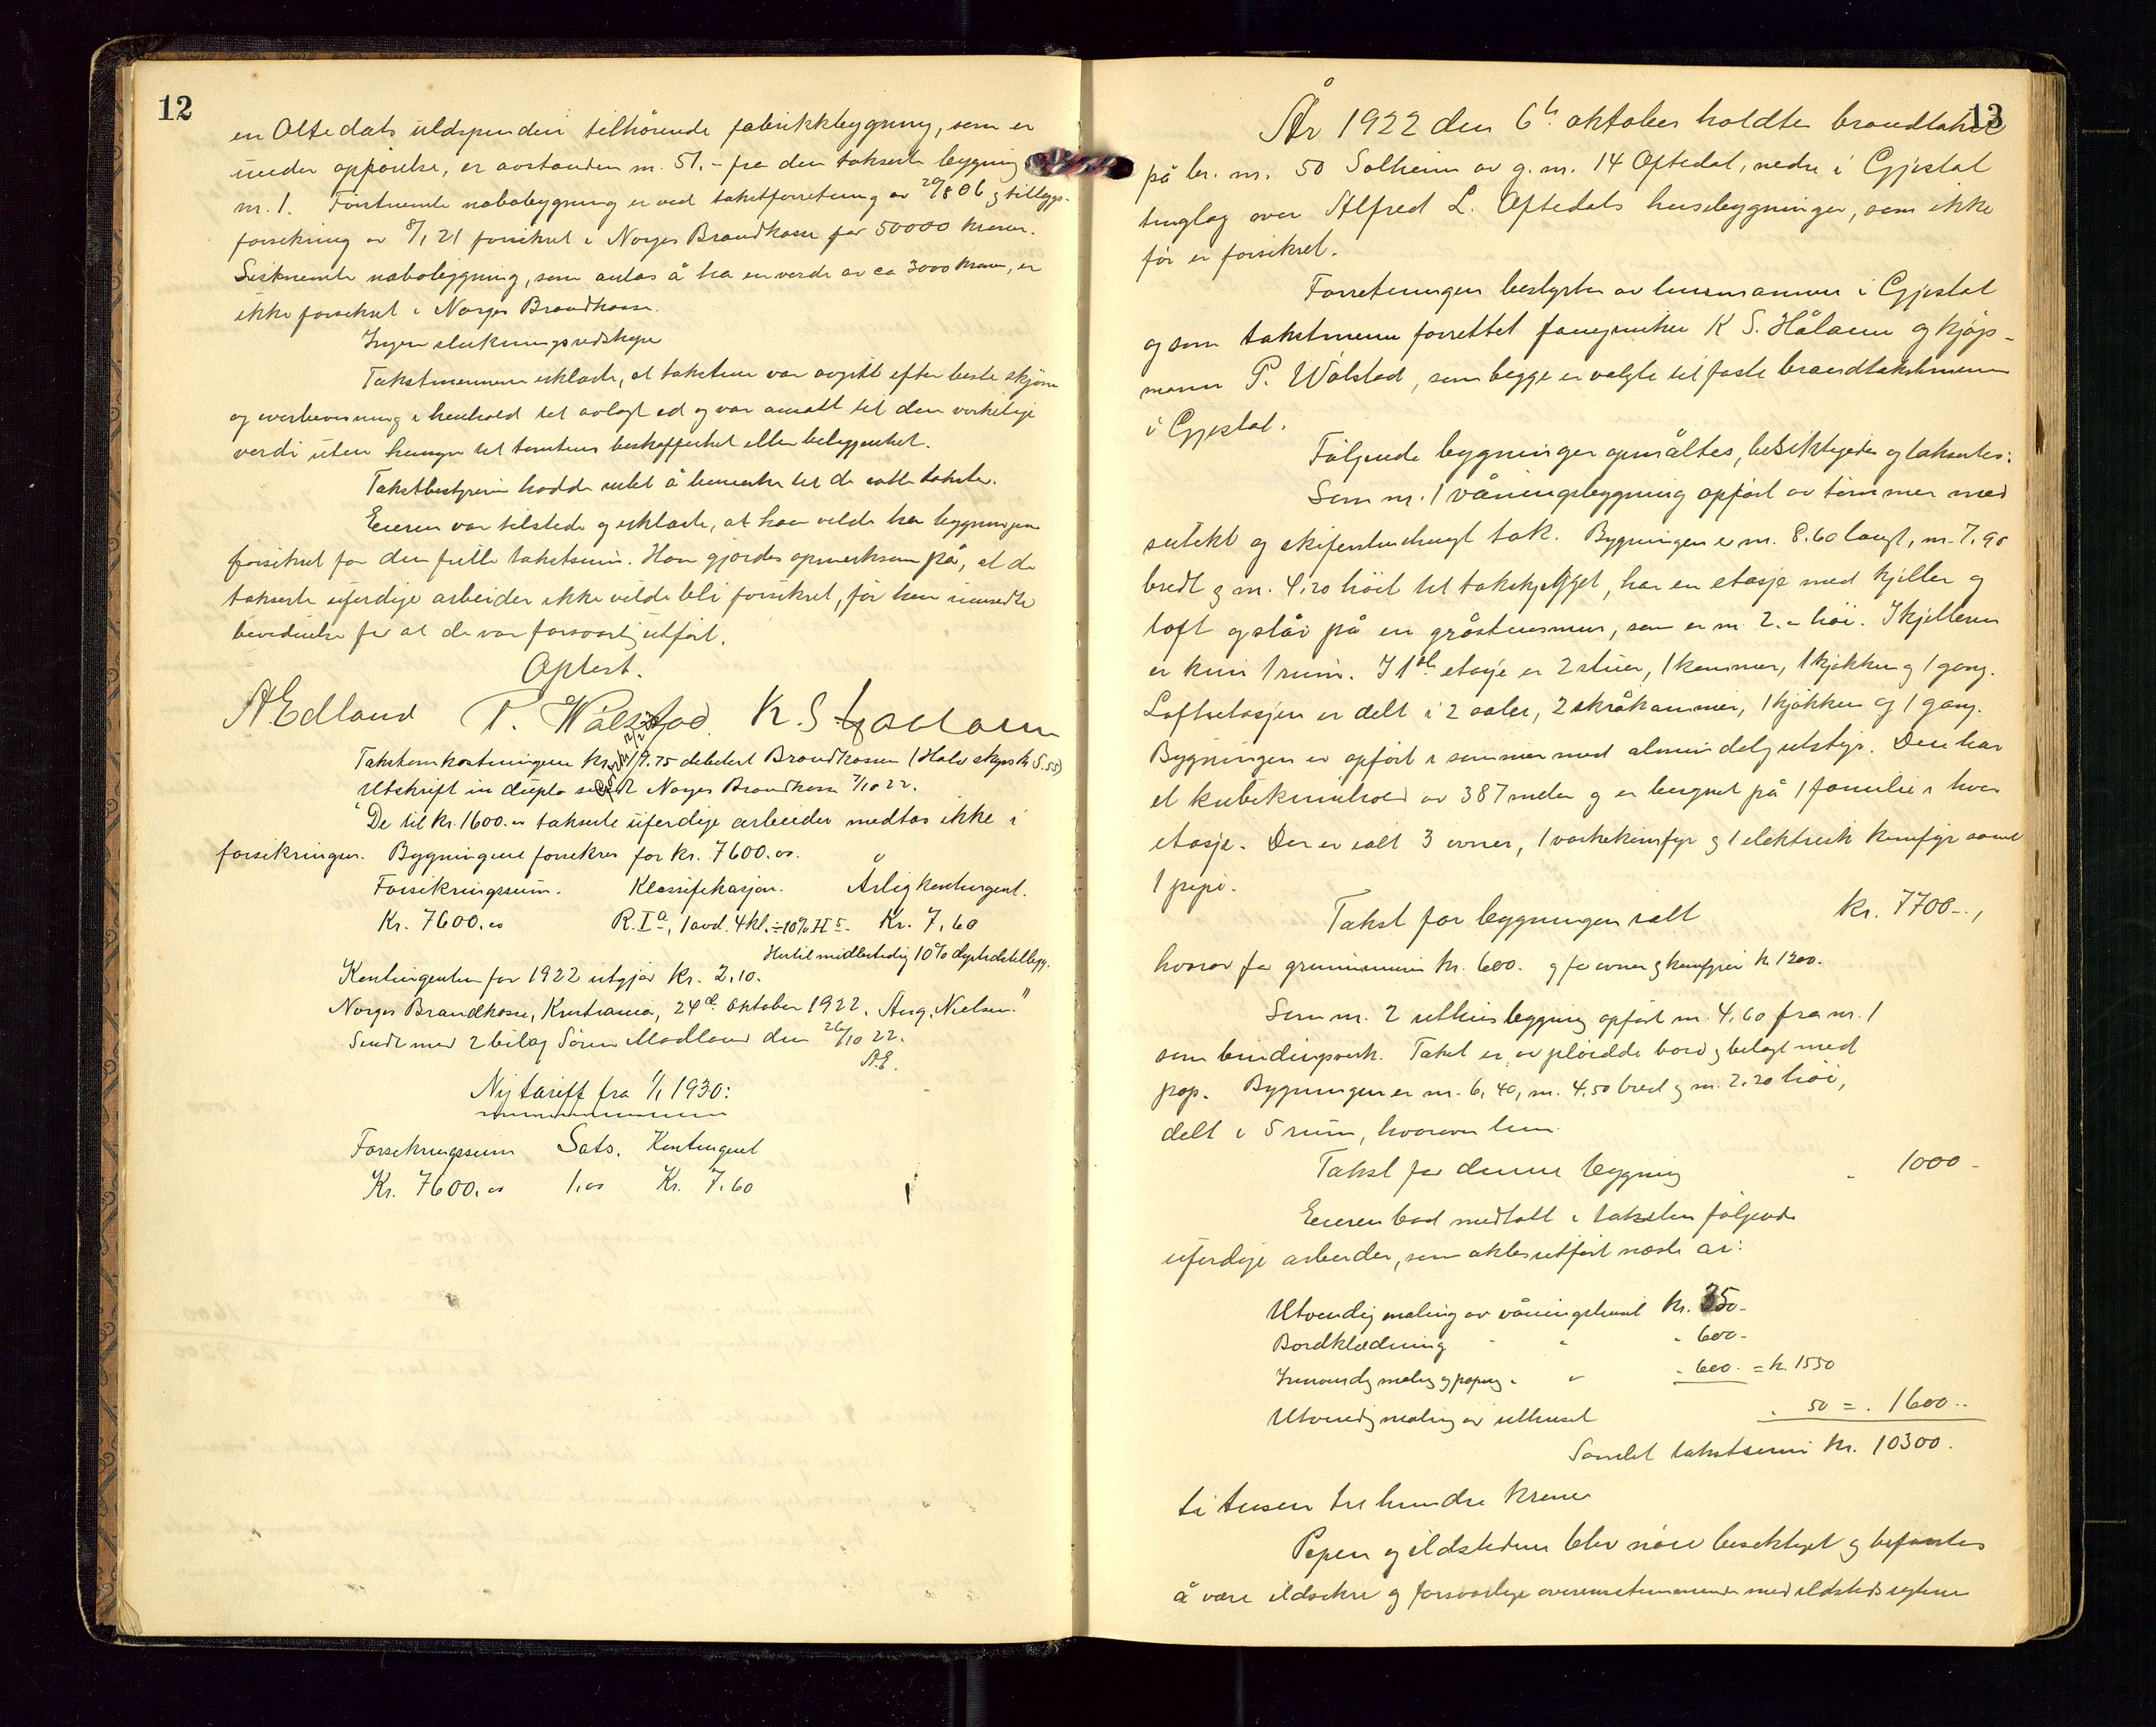 12
en Oltedals uldspinderi tilhörende fabrikkbygning, som er
under opförelse, er avstanden m. 51.- fra den takserte bygning
nr. 1. Förstnevnte nabobygning er ved takstforretning av 20/8 06 og tilleggs-
forsikring av 8/1 21 forsikret i Norges Brandkasse for 50000 kroner.
Sistnevnte nabobygning, som antas å ha en verdi av ca 3000 kroner, er
ikke forsikret i Norges Brandkasse.
Ingen slukningsredskaper
Takstmennene erklærte, at taksten var avgitt efter beste skjönn
og overbevisning i henhold til avlagt ed og var ansatt til den virkelige
verdi uten hensyn til tomtens beskaffenhet eller beliggenhet.
Takstbestyreren hadde intet å bemerke til de satte takster.
Eieren var tilstede og erklærte, at han vilde ha bygningene
forsikret for den fulle takstsum. Han gjordes opmerksom på, at de
takserte uferdige arbeider ikke vilde bli forsikret, för han innsendte
bevidnelse for at de var forsvarlig utfört.
Oplest.
A. Edland P. Wålstad K. S. Haaland
Takstomkostningene kr. 19.75 debitert Brandkassen (Halv skyss kr 5.55)
Utskrift in duplo sendt Norges Brandkasse 7/10 22.
"De til kr. 1600.00 takserte uferdige arbeider medtas ikke i
forsikringen. Bygningene forsikres for kr. 7600.00.
Forsikringssum. Klassifikasjon. Årlig kontingent.
Kr. 7600.00 R. Ia, 1 avd. 4 kl. ÷ 10% H 5. Kr. 7,60
Hertil midlertidig 10% dyrtidstillegg.
Kontingenten for 1922 utgjör kr. 2,10.
Norges Brandkasse, Kristiania, 24de oktober 1922. Aug. Nielsen."
Sendt med 2 bilag Sören Madland den 26/10 22.
AE.
Ny tariff fra 1/1 1930:
Forsikringssum Sats. Kontingent
Kr. 7600.00 1.00 Kr. 7.60
13
År 1922 den 6te oktober holdtes brandtakst
på br. nr. 50 Solheim av g. nr. 14 Oftedal, nedre i Gjestal
tinglag over Alfred L. Oftedals husebygninger, som ikke
för er forsikret.
Forretningen bestyrtes av lensmannen i Gjestal
og som takstmenn forrettet K S. Håland og kjöp-
mann P. Wålstad, som begge er valgte til faste brandtakstmenn
i Gjestal.
Fölgende bygninger opmåltes, besiktigedes og takserties:
Som nr. 1 våningsbygning opfört av tömmer med
sutekt og skifertækt tak. Bygningen er m. 8.60 langt, m. 7.90
bredt og m. 4.20 höit til takskjegget, har en etasje med kjeller og
loft og står på en gråstensmur, som er m 2.- höi. I kjelleren
er kun 1 rum. I 1ste etasje er 2 stuer, 1 kammer, 1 kjökken og 1 gang.
Loftsetasjen er delt i 2 saler, 2 skråkammer, 1 kjökken og 1 gang.
Bygningen er opfört i sommer med almindelig utstyr. Den har
et kubikinnhold av 387 meter og er beregnet på 1 familie i hver
etasje. Der er ialt 3 ovner, 1 vaskekomfyr og 1 elektrisk komfyr samt
1 pipe.
Takst for bygningen ialt kr. 7700-.,
hvorav for grunnmuren kr. 600. og for ovner og komfyrer kr 1200.
Som nr. 2 uthusbygning opfört m. 4.60 fra nr. 1
som bindingsverk. Taket er av plöidde bord og belagt med
pap. Bygningen er m. 6,40, m. 4.50 bred og m. 2.20 höi,
delt i 5 rum, hvorover lem.
Takst for denne bygning " 1000-
Eieren bad medtatt i taksten fölgende
uferdige arbeider, som aktes utfört næste år:
Utvendig maling av våningshuset kr. 350-
Bordklædning " " " 600-
Innvendig maling og papng. " " " 600. = kr. 1550
Utvendig maling av uthuset " 50 = " 1600..
Samlet takstsum kr. 10300.
ti tusen tre hundre kroner
Pipen og ildstedene blev nöie besiktiget og befantes
å være ildsikre og forsvarlige overensstemmende med ildstedsreglene